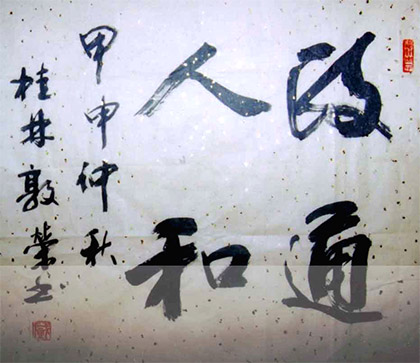 政通
人和
甲申仲秋
桂林敦荣书